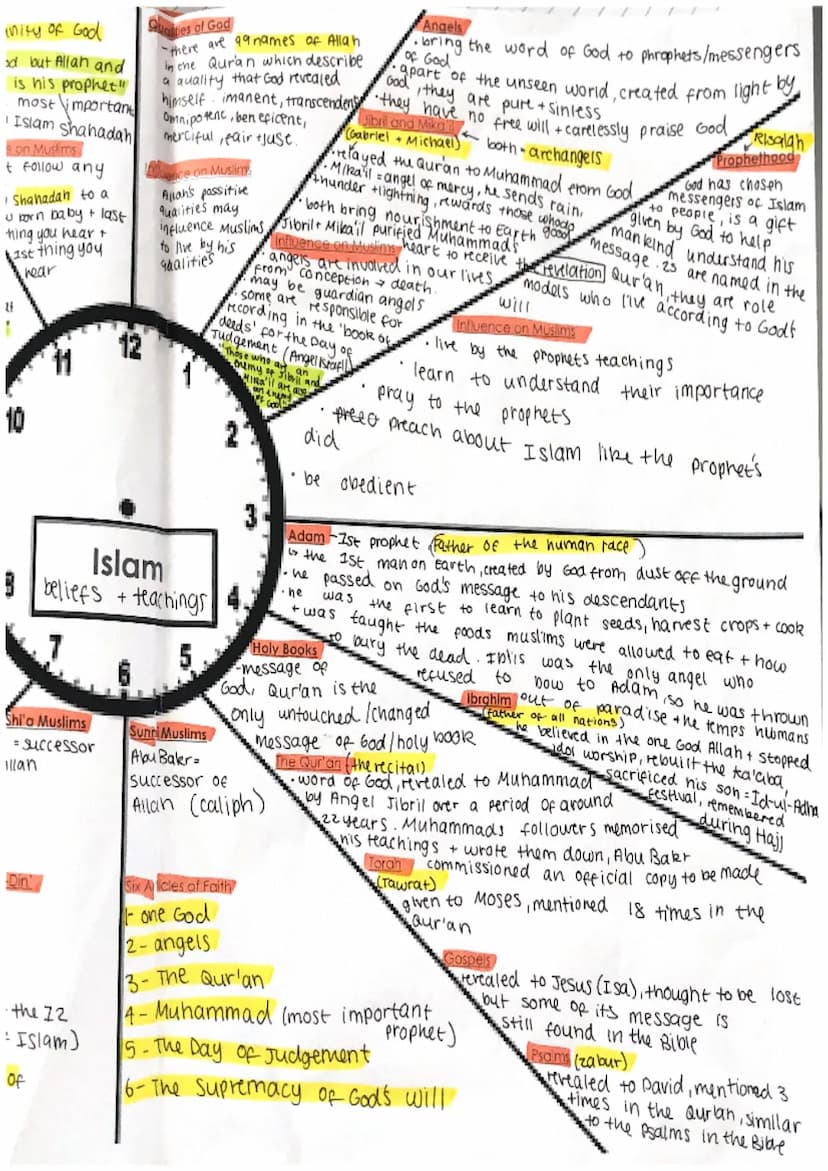 unity of God
but Allah and
is his prophet"
most important
Islam Shahadah
on Muslims
follow any
Shahadah to a
born baby + last
thing you hear +
1st thing you
hear
Qualities of God
- there are 99 names of Allah
in the Qur'an which describe
a quality that God revealed
himself. imanent, transcendent
omnipotent, beneficent,
merciful, fair + just.
Influence on Muslims
Allah's passitive
qualities may
influence Muslims
to live by his
qualities
Angels
· bring the word of God to phrophets/messengers
of God
· apart of the unseen world, created from light by
God, they are pure + sinless
· they have no free will + carelessly praise God
Jibril and Mika'il
(Gabriel + Michael)
both = archangels
· relayed the Qur'an to Muhammad from God
· Mika'il = angel of mercy, he sends rain,
thunder + lightning, rewards those who do
good
· both bring nourishment to Earth
Jibril + Mika'il purified Muhammad's
heart to receive the revelation
Influence on Muslims
· angels are involved in our lives
from conception → death.
· may be guardian angels
· some are responsible for
recording in the 'book of
deeds' for the Day of
Judgement (Angel Israfil)
"Those who are an
enemy of Jibril and
Mika'il are also
an enemy
of God"
Risalah
Prophethood
God has chosen
messengers of Islam
to people, is a gift
given by God to help
mankind understand his
message. 25 are named in the
Qur'an, they are role
models who live according to God's
will
Influence on Muslims
· live by the prophets teachings
· learn to understand their importance
· pray to the prophets
· preach about Islam like the prophet's
did
· be obedient
11
12
1
10
2
3
9
4
8
7
6
5
Islam
beliefs + teachings
Adam - 1st prophet (Father of the human race)
↳ the 1st man on Earth, created by God from dust off the ground
· he passed on God's message to his descendants
· he was the first to learn to plant seeds, harvest crops + cook
+ was taught the foods muslims were allowed to eat + how
to bury the dead. Iblis was the only angel who
refused to bow to Adam, so he was thrown
out of paradise + he temps humans
Ibrahim
(father of all nations)
he believed in the one God Allah + stopped
idol worship, rebuilt the ka'aba,
sacrificed his son = Id-ul-Adha
festival, remembered
during Hajj
Holy Books
- message of
God, Qur'an is the
only untouched/changed
message of God/holy book
The Qur'an (the recital)
· word of God, revealed to Muhammad
by Angel Jibril over a period of around
22 years. Muhammads followers memorised
his teachings + wrote them down, Abu Bakr
commissioned an official copy to be made
Torah
(Tawrat)
given to Moses, mentioned 18 times in the
Qur'an
Gospels
revealed to Jesus (Isa), thought to be lost
but some of its message is
still found in the Bible
Psalms (zabur)
revealed to David, mentioned 3
times in the Qur'an, similar
to the Psalms in the Bible
Shi'a Muslims
= successor
Sunni Muslims
Abu Baker =
successor of
Allah (caliph)
Din'
the 12
= Islam)
of
Six Articles of Faith
1- one God
2- angels
3- The Qur'an
4- Muhammad (most important
prophet)
5- The Day of Judgement
6- The Supremacy of God's will